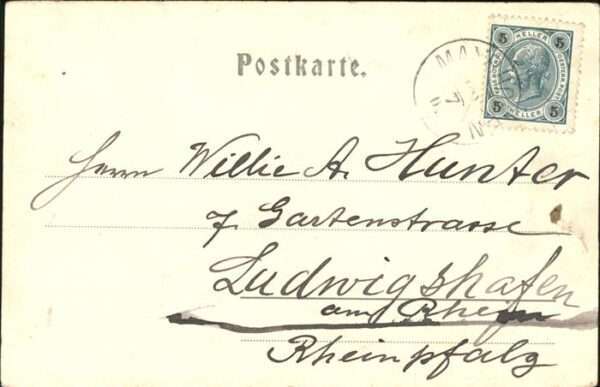 Postkarte.
5 HELLER 5
5 HELLER 5
MA
Herrn Willie A. Hunter
7. Gartenstrasse
Ludwigshafen
am Rhein
Rheinpfalz